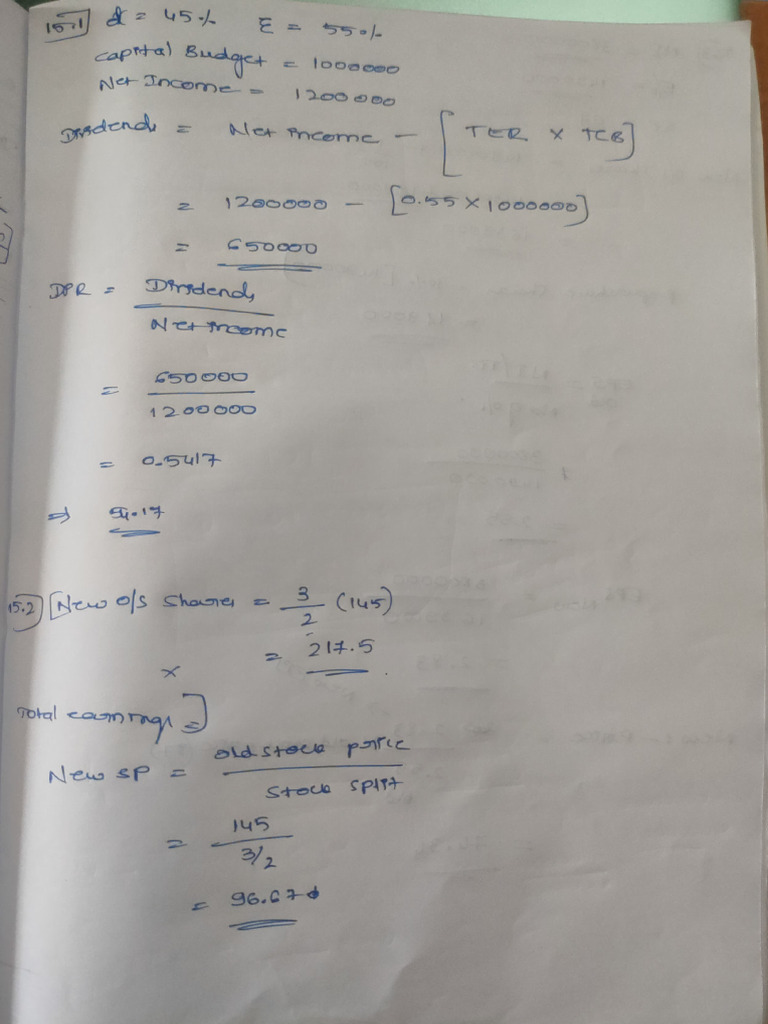 15.1 d = 45% E = 55%
Capital Budget = 1000000
Net Income = 1200000
Dividends = Net income - [TER x TCB]
= 1200000 - [0.55 x 1000000]
= 650000
DPR = Dividends / Net income
= 650000 / 1200000
= 0.5417
⇒ 54.17
15.2 [New o/s Shares = 3/2 (145)
= 217.5
x
Total earnings =]
New SP = old stock price / stock split
= 145 / 3/2
= 96.67